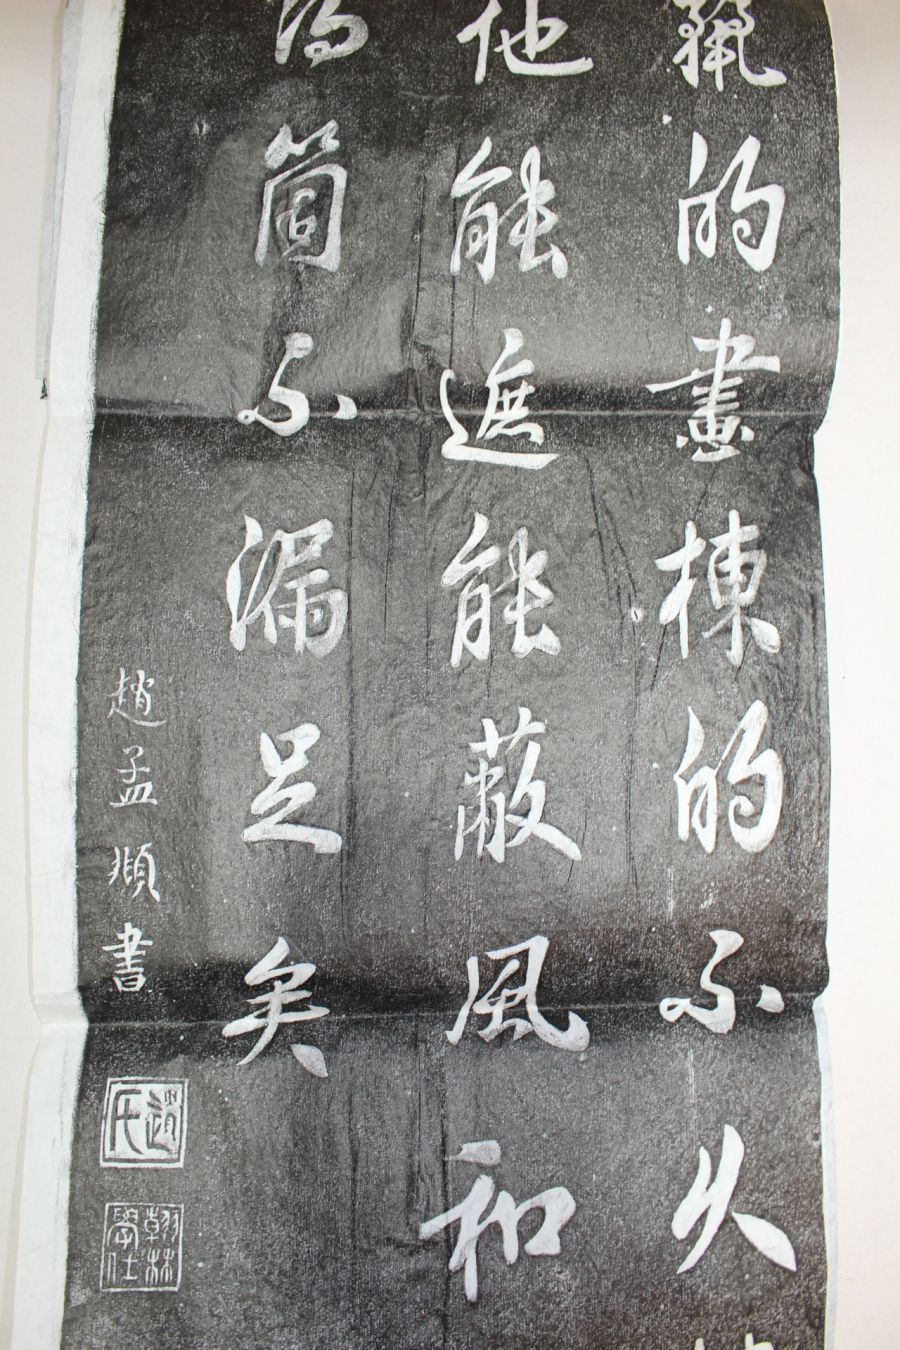 的畫棟的不久
他能遮能蔽風和
箇不漏足矣
趙孟頫書
趙氏
翰林學仕